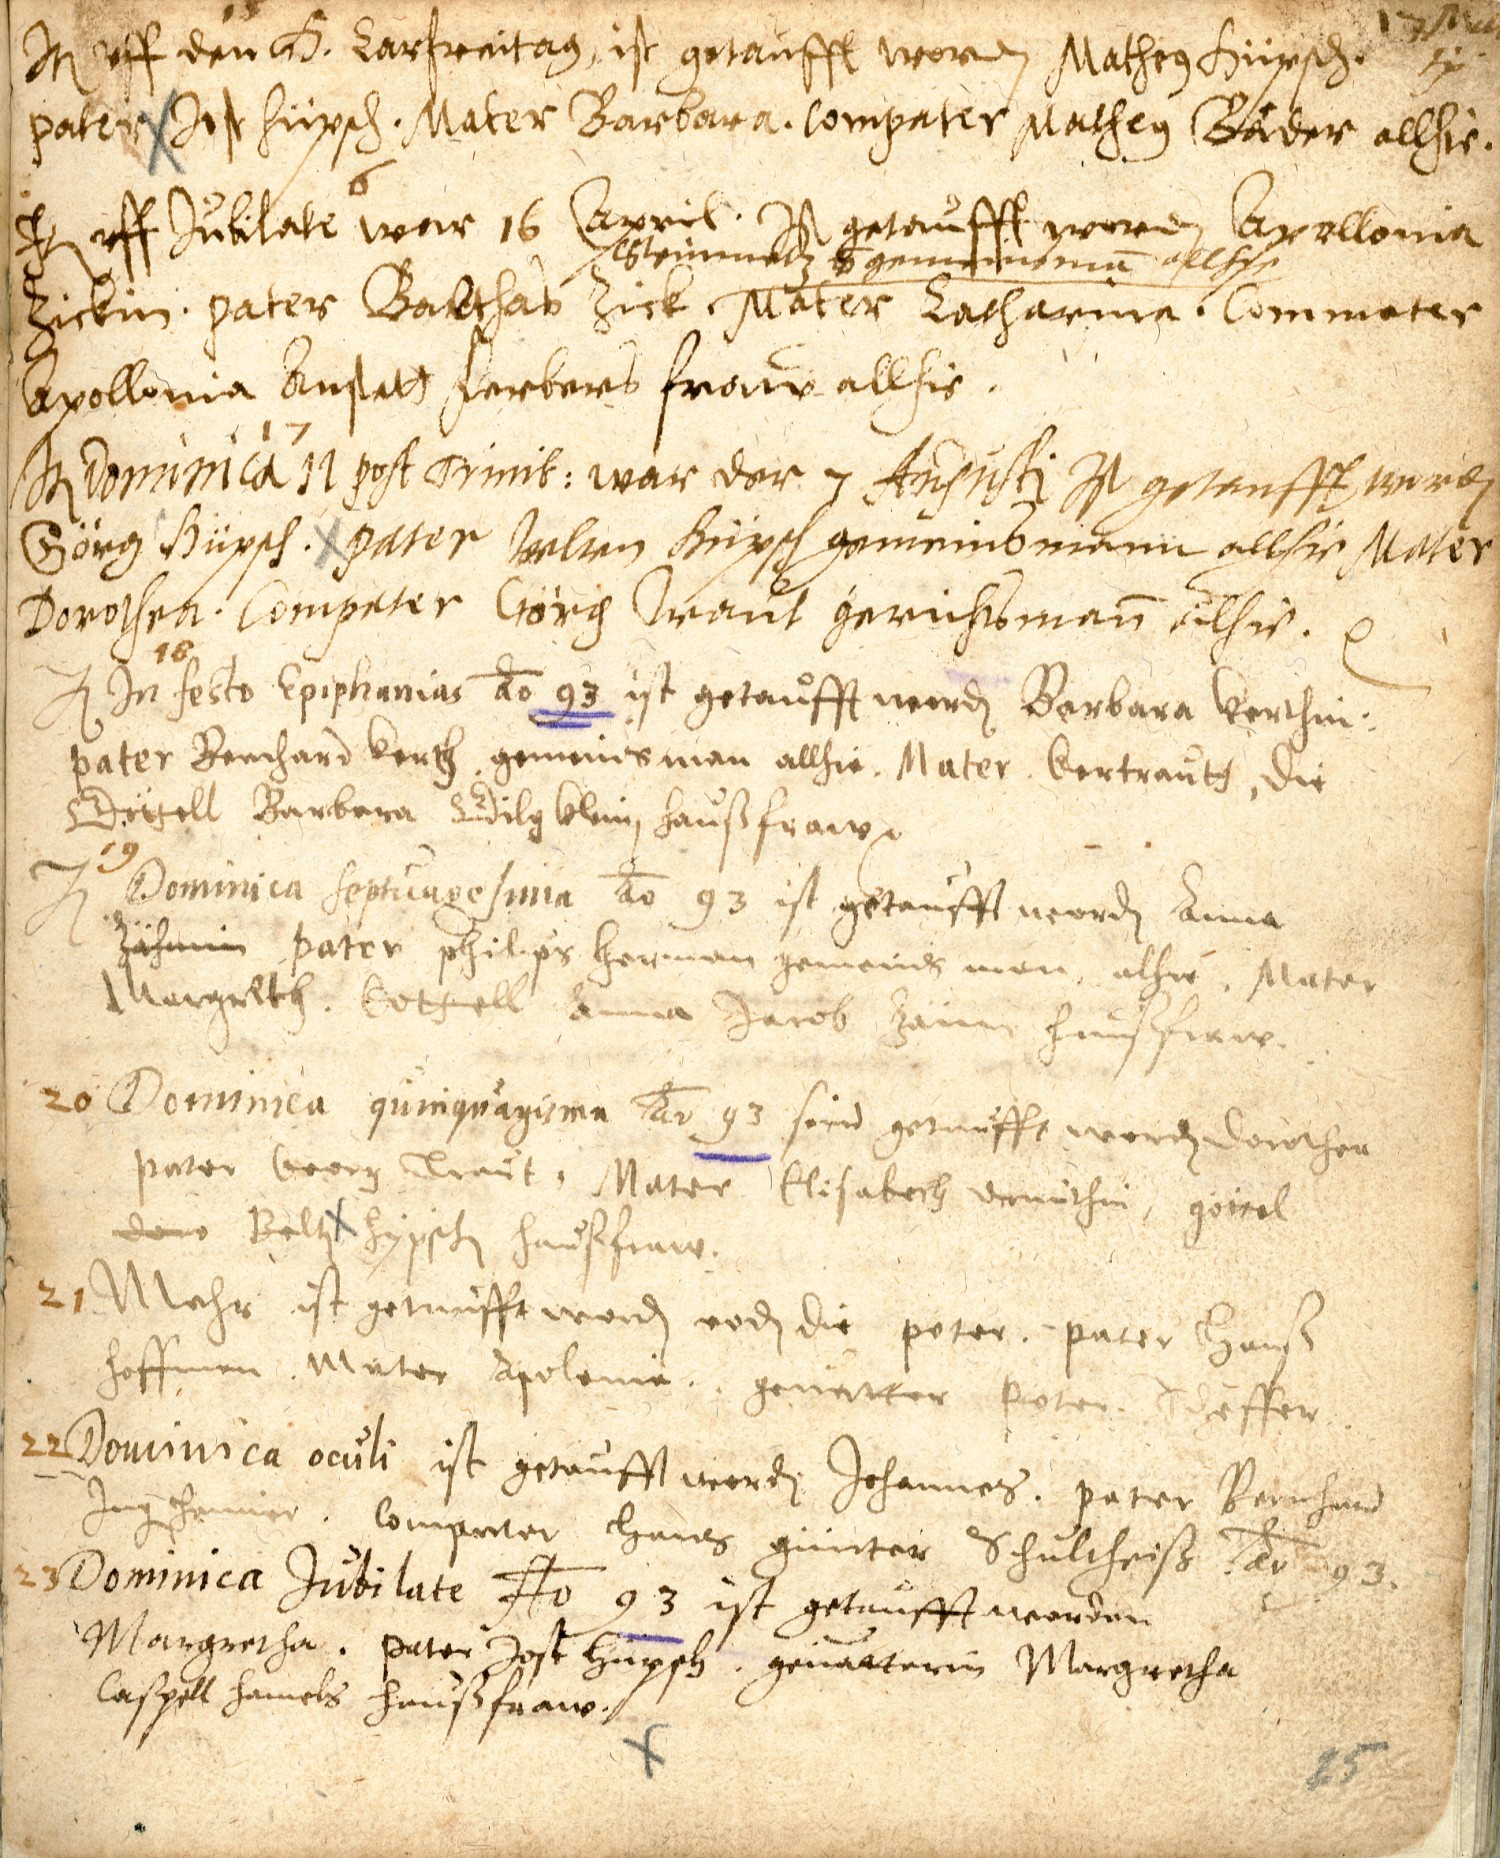 15
It uff den H. Carfreitag, ist getaufft worden Matheus Hüpsch.
pater Jost Hüpsch. Mater Barbara. Compater Matheus Bäder allhie.
6
It uff Jubilate war 16 April. Ist getaufft worden Apollonia
Steinmetz gemeinsman allhie
Zickin. pater Balthas Zick. Mater Catharina. Commater
Apollonia Anstett Ferbers frauw allhie.
17
It Dominica 11 post Trinit: war der 7 Augusti Ist getaufft worden
Görg Hüpsch. pater Velten Hüpsch gemeinsmann allhie Mater
Dorothea. Compater Görg Traut gerichsmañ allhie.
18
It In festo Epiphanias Ao 93 ist getaufft wordn Barbara Kerthin.
pater Bernhard Kertz gemeinsman allhie. Mater Gertrautt, die
Göttell Barbara Dilg Klein haußfraw.
19
It Dominica septuagesima Ao 93 ist getaufft wordn Anna
Zähmin pater philips Herman gemeinds man, alhie. Mater
Margreth. Gottell Anna Jacob Zäum haußfraw.
20 Dominica quinquagesima Ao 93 seind getaufft wordn Dorothea
pater Georg Traut, Mater Elisabeth, göttel
Veltn Hypsch haußfraw.
21 Mehr ist getaufft wordn die peter. pater Hanß
Hoffman. Mater Apolonia. gevatter Peter
22 Dominica oculi ist getaufft wordn Johannes. pater Bernhard
Compater Hans günter Schultheiß Ao 93.
23 Dominica Jubilate Ao 93 ist getaufft worden
Margretha. pater Jost Hüpsch. gevatterin Margretha
Caspell Hamels haußfraw.
25